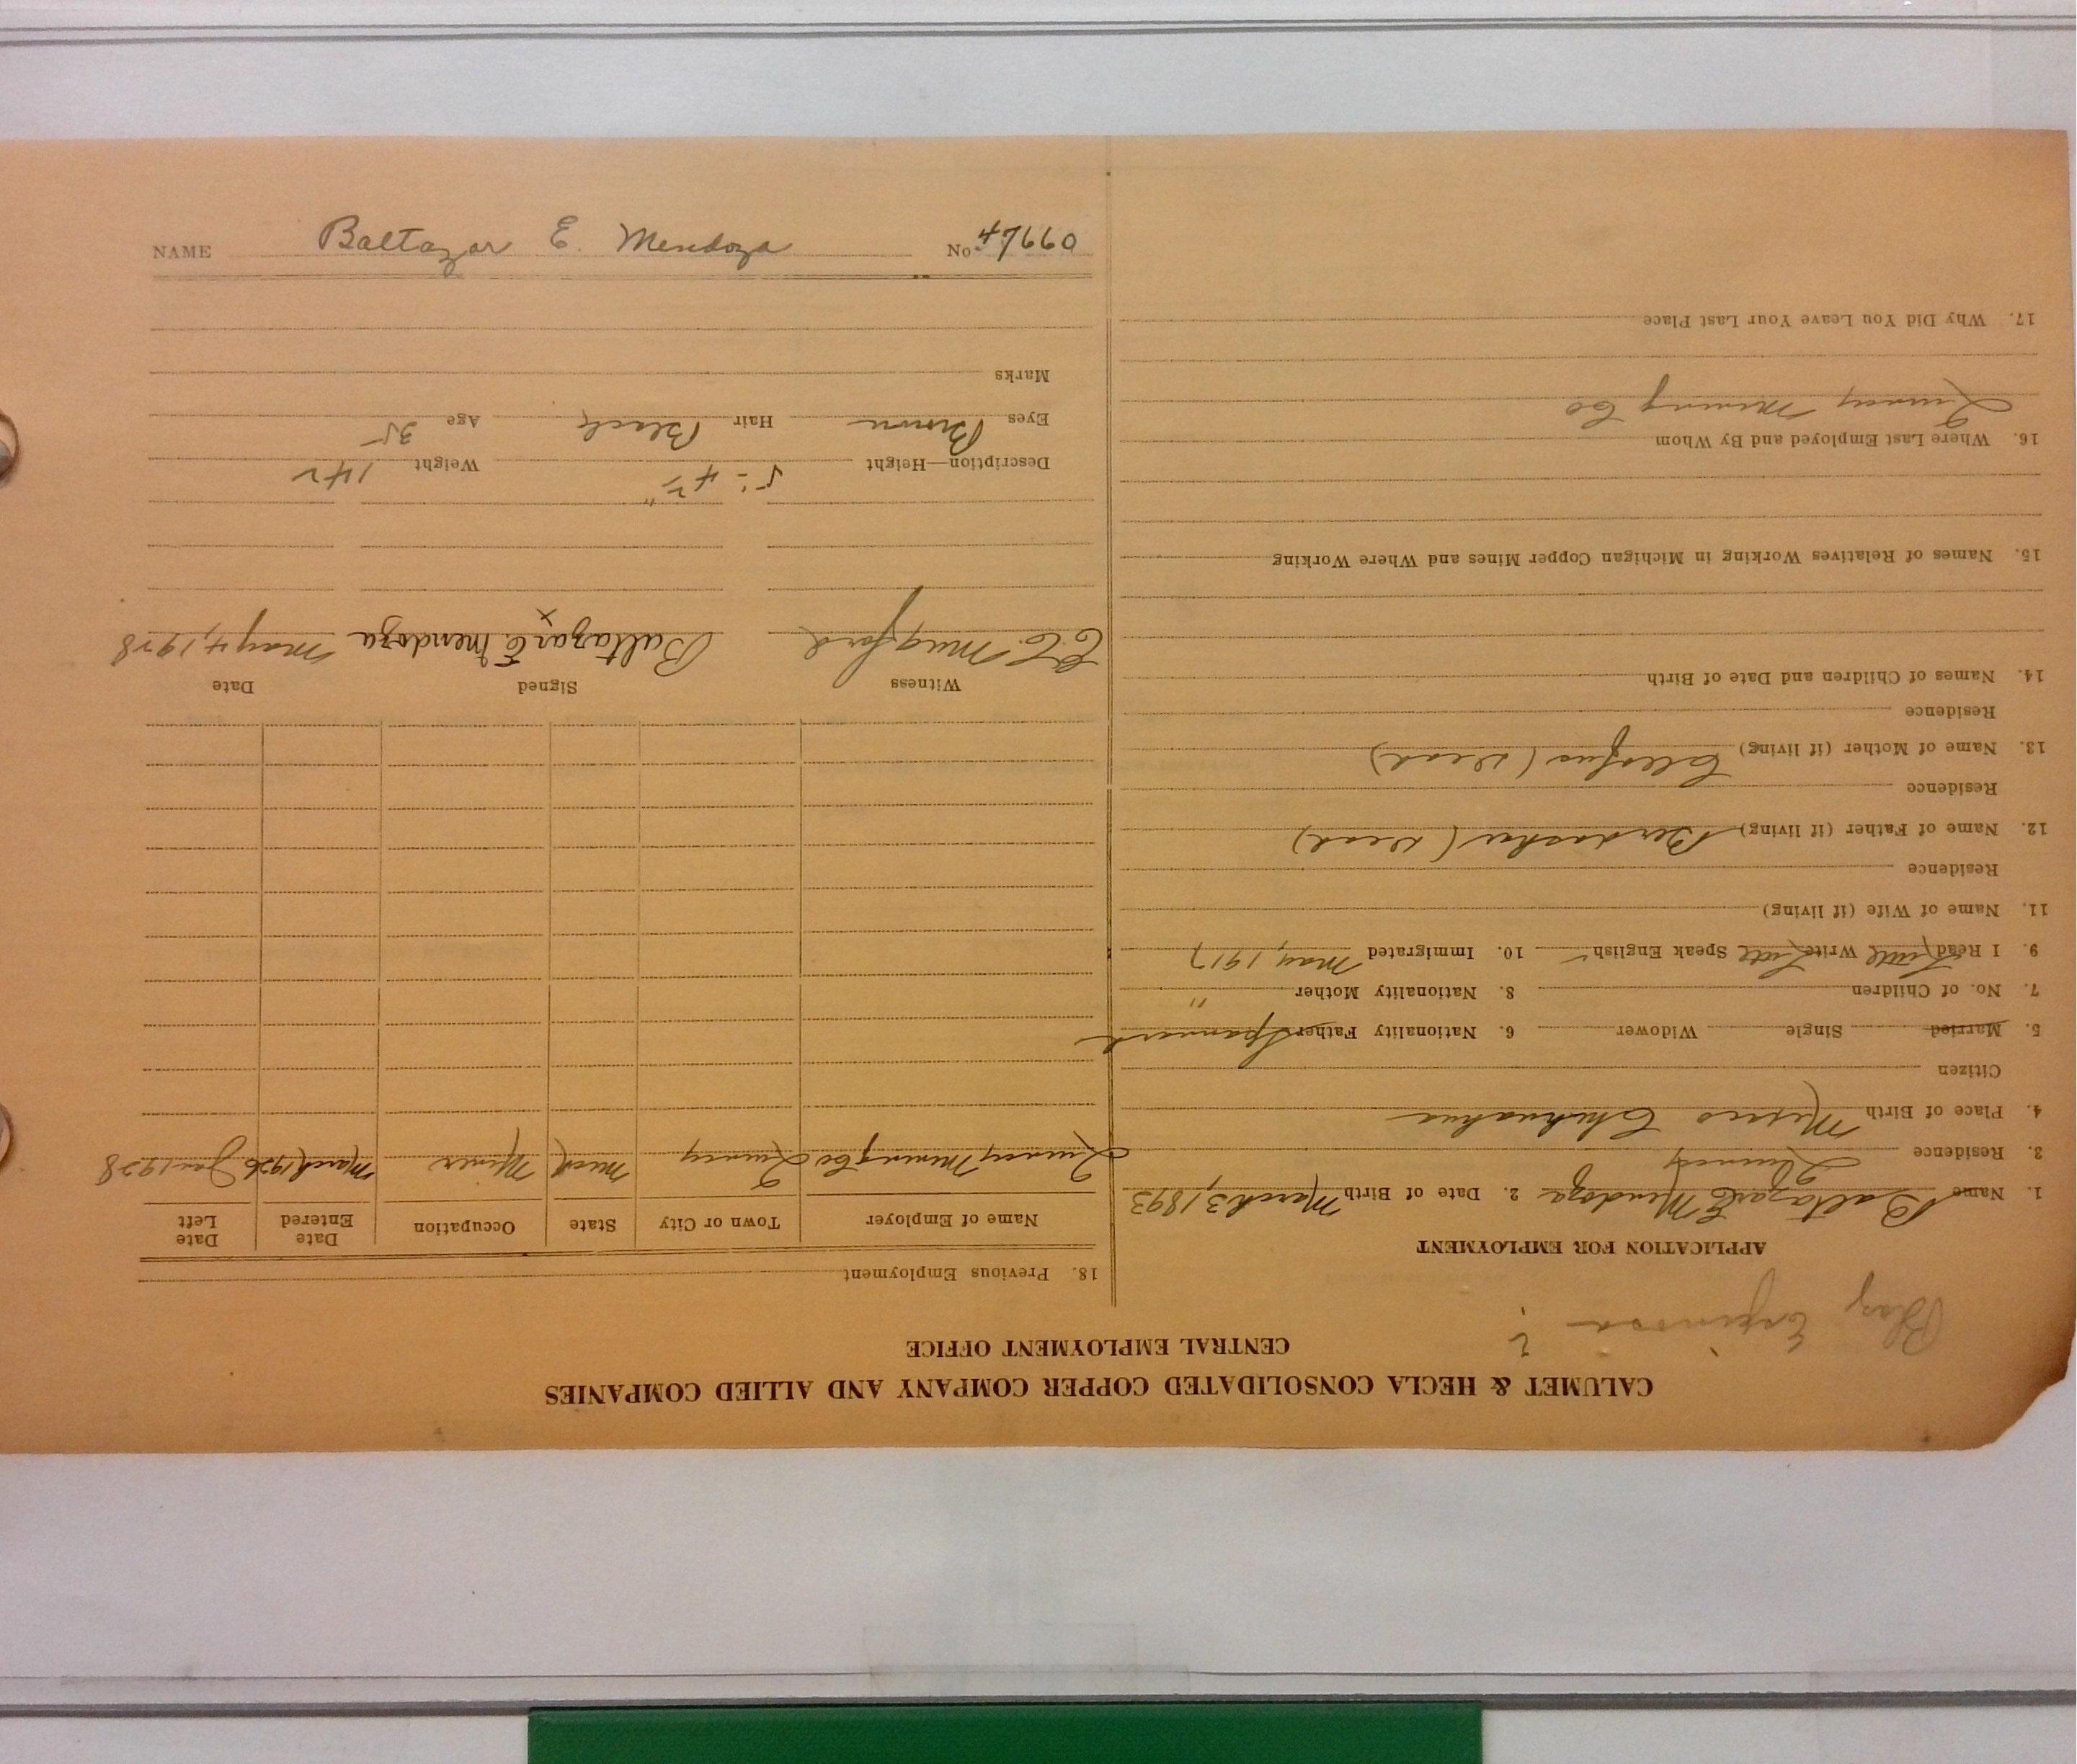 CALUMET & HECLA CONSOLIDATED COPPER COMPANY AND ALLIED COMPANIES
CENTRAL EMPLOYMENT OFFICE
Blaz Espinosa
?
APPLICATION FOR EMPLOYMENT
1. Name Baltazar E Mendoza 2. Date of Birth March 3, 1893
3. Residence Quincy
4. Place of Birth Mexico Chihuahua
Citizen
5. Married Single Widower 6. Nationality Father Spaniard
7. No. of Children 8. Nationality Mother "
9. I Read Little Write Little Speak English 10. Immigrated May, 1917
11. Name of Wife (if living)
Residence
12. Name of Father (if living) (Dead)
Residence
13. Name of Mother (if living) (Dead)
Residence
14. Names of Children and Date of Birth
15. Names of Relatives Working in Michigan Copper Mines and Where Working
16. Where Last Employed and By Whom
Quincy Mining Co
17. Why Did You Leave Your Last Place
18. Previous Employment
Name of Employer Town or City State Occupation Date Entered Date Left
Quincy Mining Co Quincy Mich Miner March 1926 Jan 1928
Witness Signed Date
Mugford Baltazar E. Mendoza May 4, 1928
x
Description—Height 5'-4½" Weight 142
Eyes Brown Hair Black Age 35
Marks
NAME Baltazar E. Mendoza No. 47660